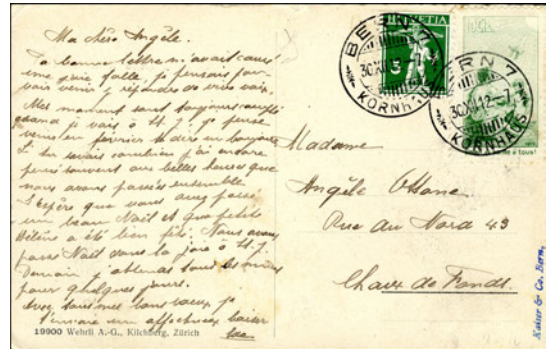 Ma chère Angèle.
Ta bonne lettre m'avait causé
une joie folle, je pensais pou-
voir venir y répondre de vive voix,
Mes moment sont toujours
quand je vais à St. J. Je pense
venir en février te dire un bonjour
Si tu savais combien j'ai encore
pensé souvent aux belles heures que
nous avons passées ensemble
J'espère que vous avez passé
un beau Noël et que petite
Hélène a été bien fêtée. Nous avons
passé Noël dans la joie à St. J.
Demain j'attends tous les
pour quelques jours.
Avec tous mes bons vœux je
t'envoie un affectueux baiser
19900 Wehrli A.-G., Kilchberg, Zürich
HELVETIA
5
BERN 7
30.XII.12.-7
KORNHAUS
BERN 7
30.XII.12.-7
KORNHAUS
à tous!
Madame
Angèle
Rue du Nord 43
Chaux de Fonds.
Kaiser & Co. Bern,